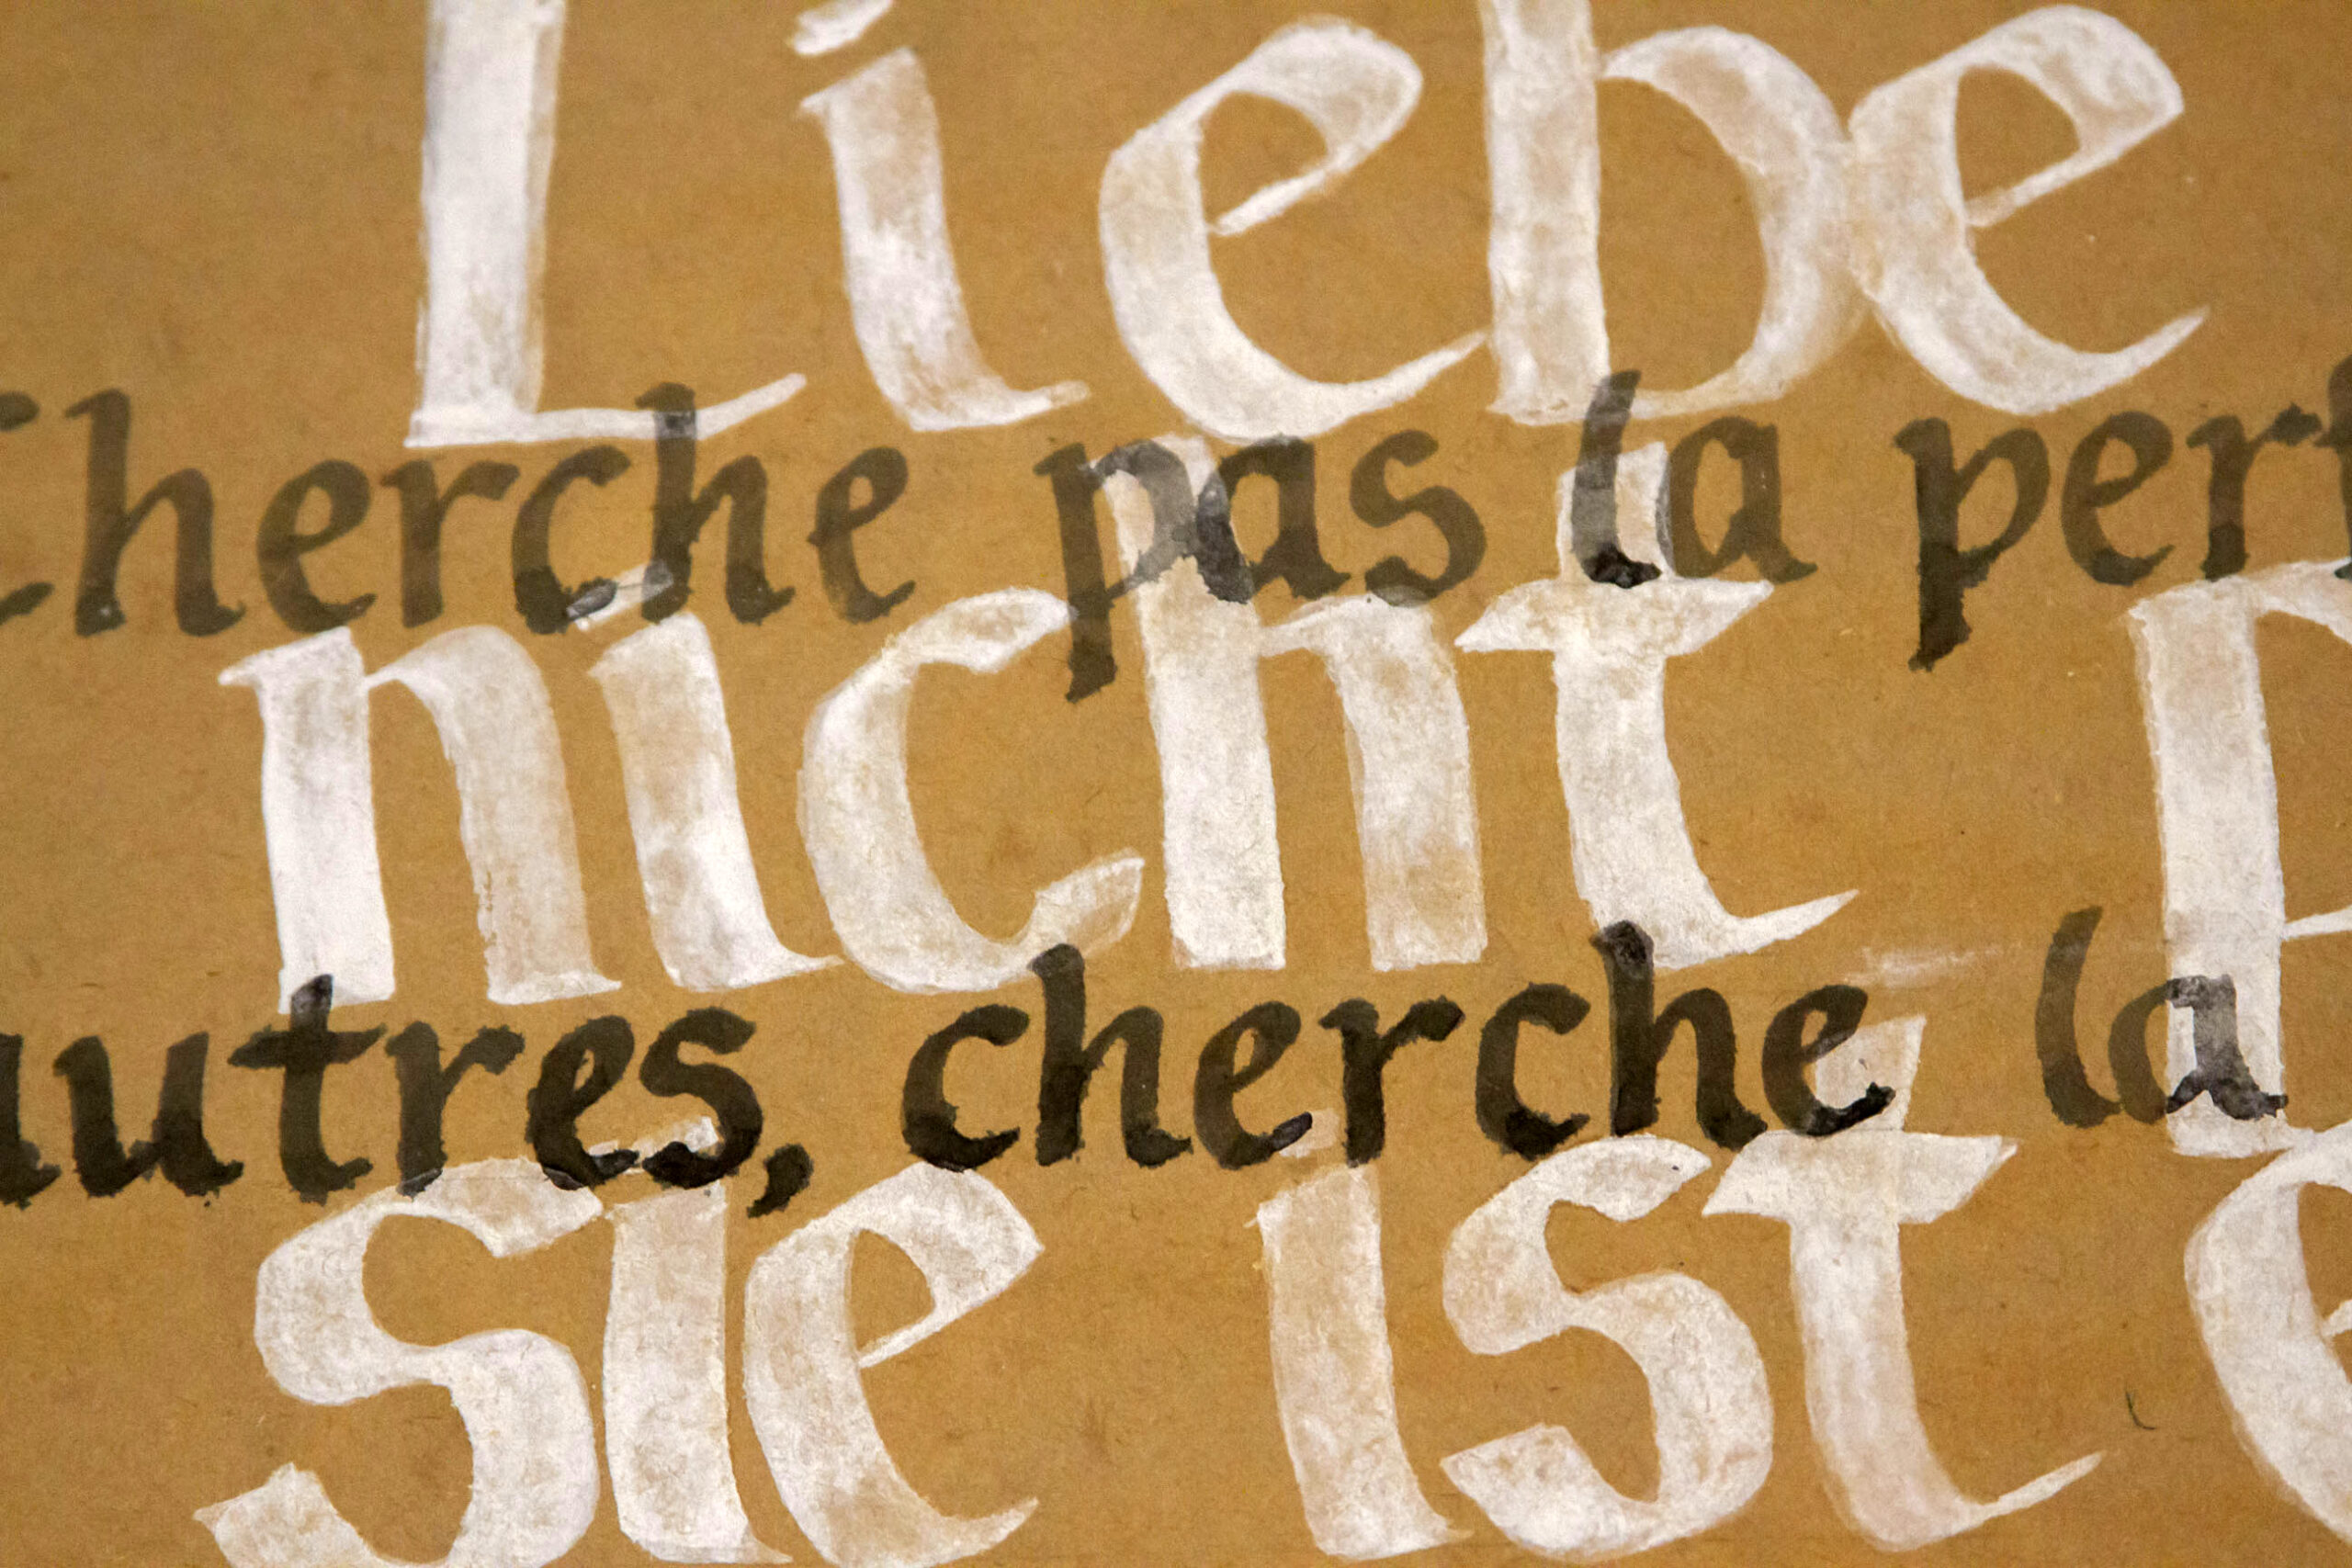 Liebe
cherche pas la perf
nicht
autres, cherche la
sie ist